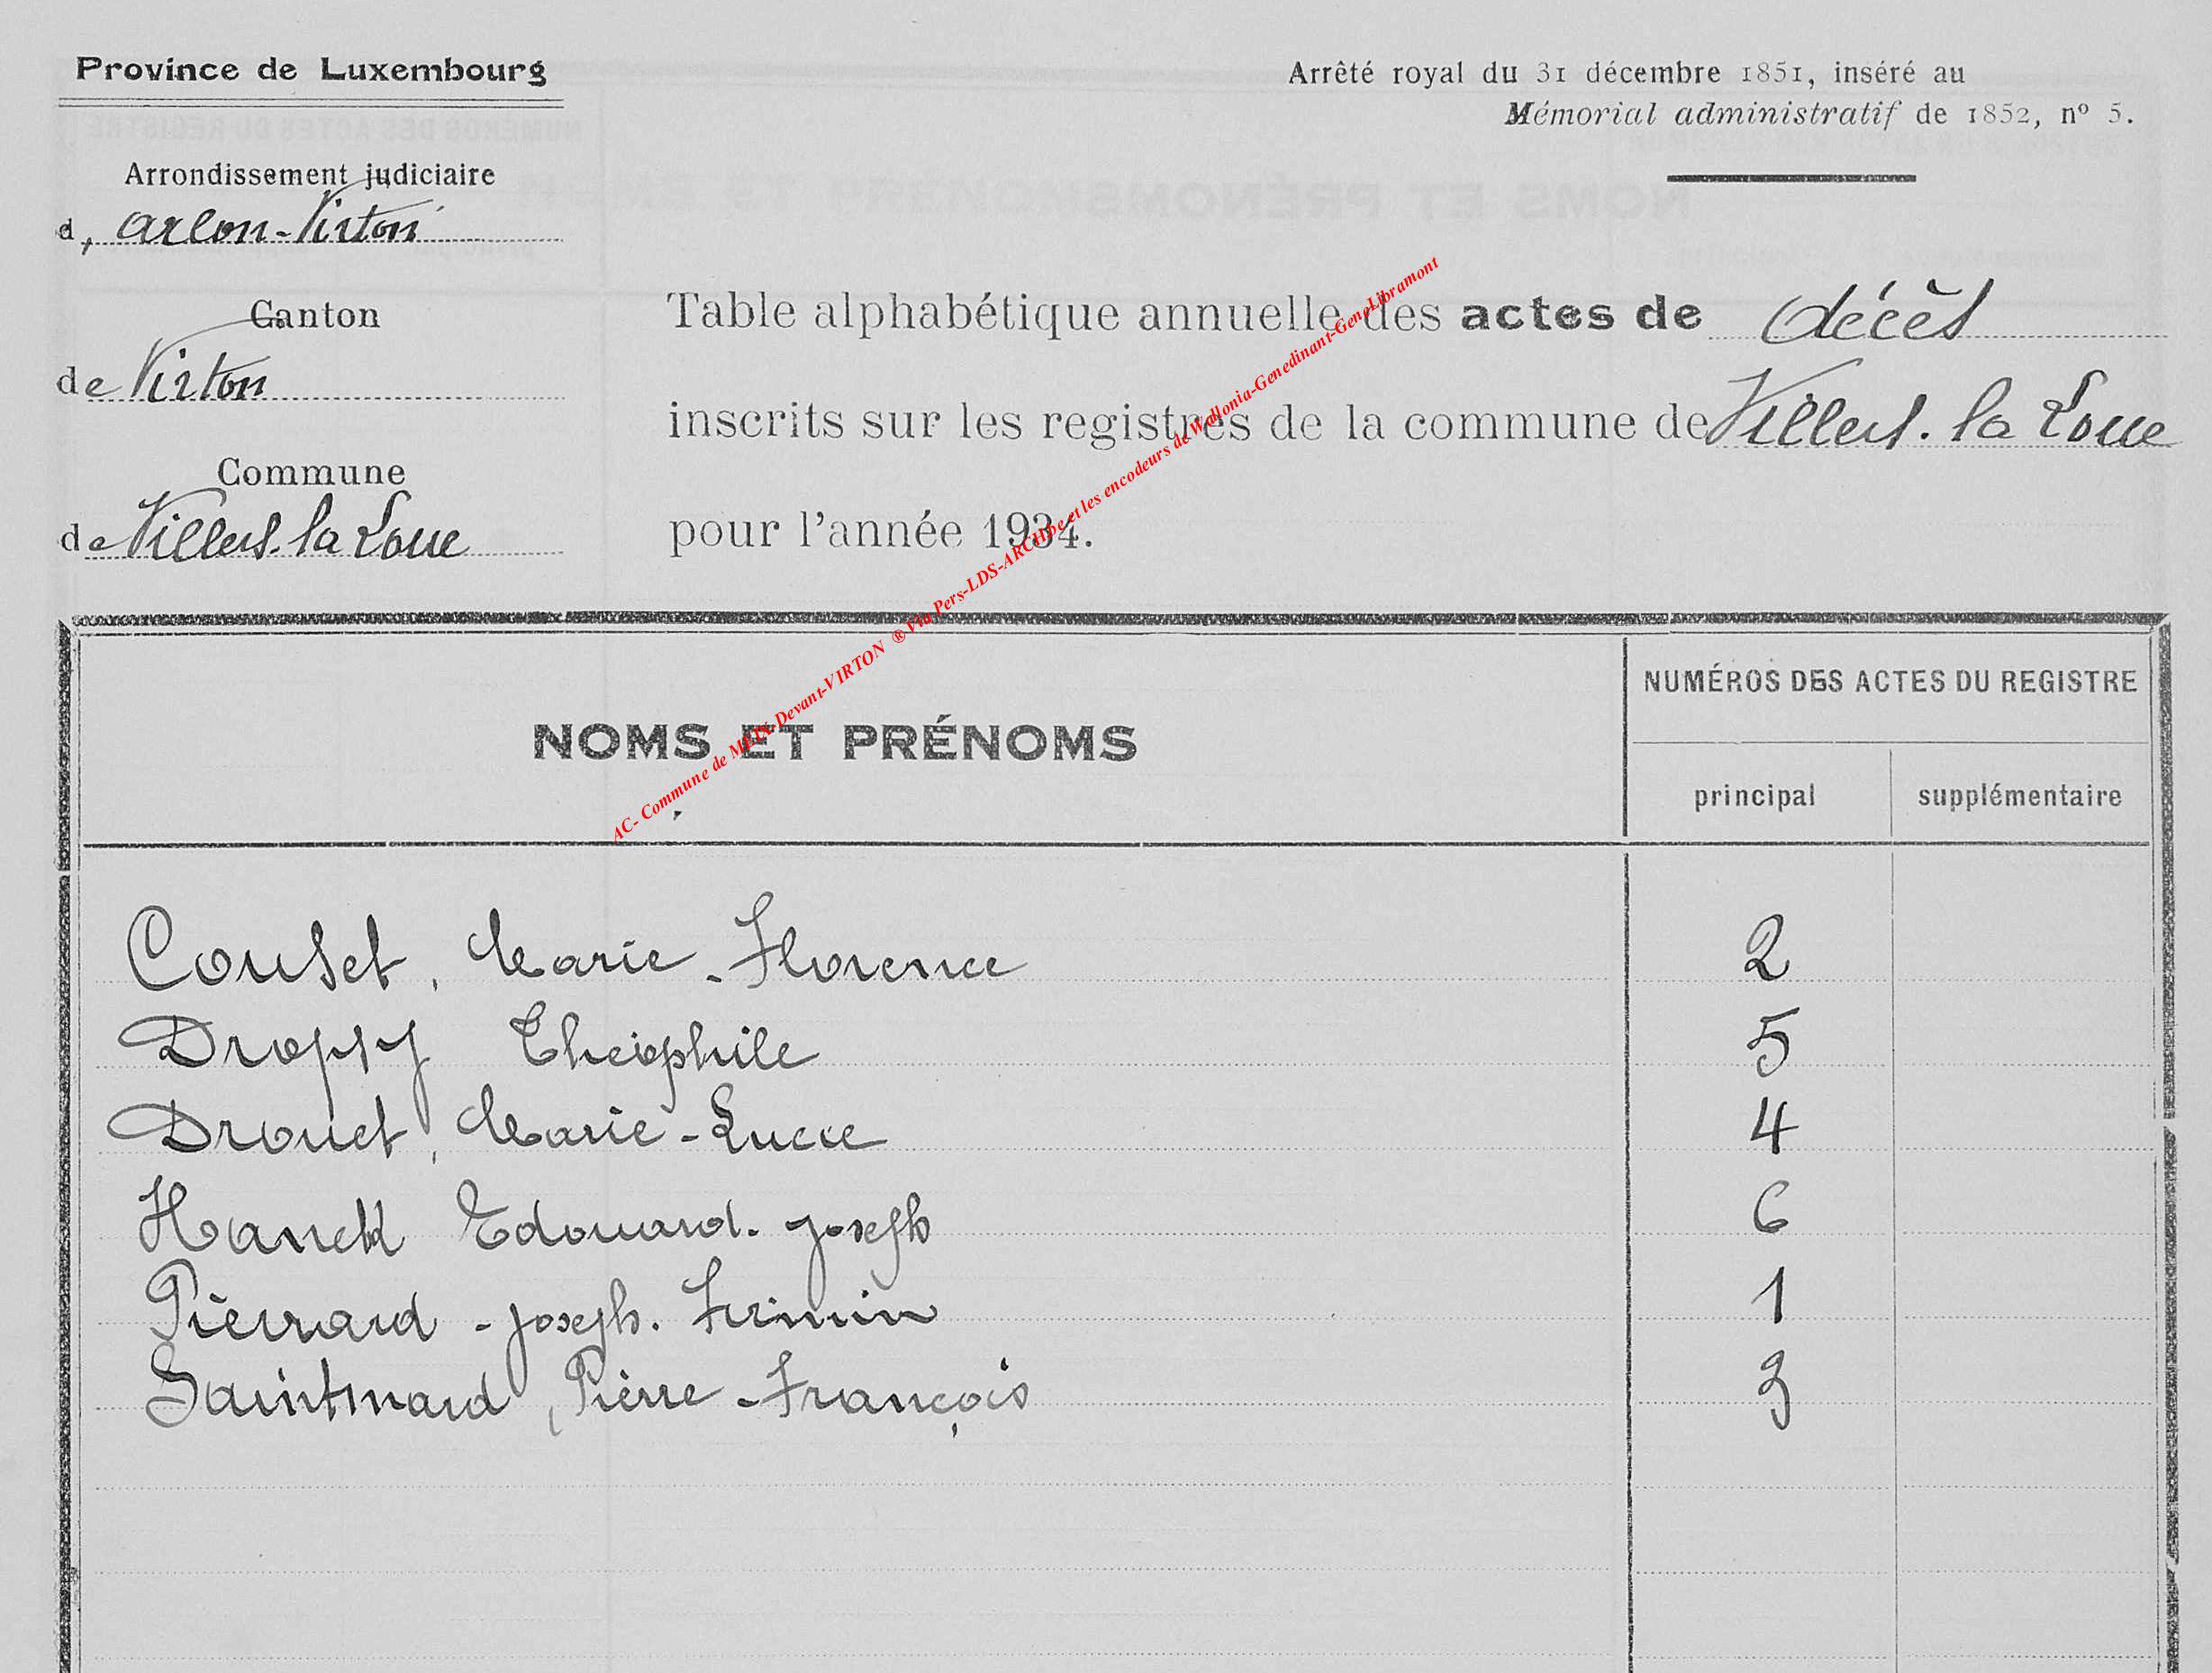 Province de Luxembourg
Arrêté royal du 31 décembre 1851, inséré au
Mémorial administratif de 1852, nº 5.
Arrondissement judiciaire
d, Arlon-Virton
Canton
de Virton
Commune
de Villers-la-Loue
Table alphabétique annuelle des actes de décès
inscrits sur les registres de la commune de Villers-la Loue
pour l'année 1934.
AC- Commune de MEIX-Devant-VIRTON ® Via Pers-LDS-ARCH.be et les encodeurs de Wallonia-Genedinant-GeneLibramont
NOMS ET PRÉNOMS
NUMÉROS DES ACTES DU REGISTRE
principal supplémentaire
Couset, Marie-Florence 2
Dropsy Théophile 5
Drouet, Marie-Luce 4
Hanck Edouard-Joseph 6
Pierrard - Joseph. Firmin 1
Saintmard, Pierre-François 3